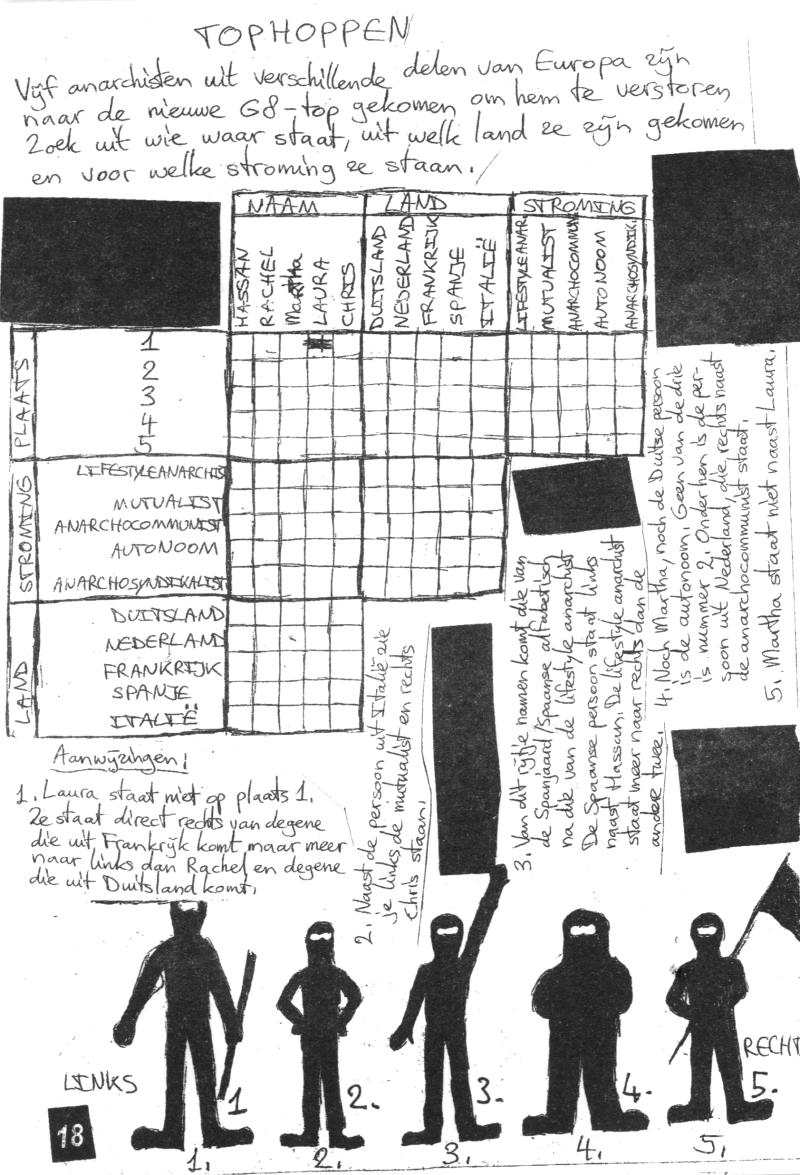 TOPHOPPEN
Vijf anarchisten uit verschillende delen van Europa zijn
naar de nieuwe G8-top gekomen om hem te verstoren
Zoek uit wie waar staat, uit welk land ze zijn gekomen
en voor welke stroming ze staan.
NAAM
LAND
STROMING
HASSAN
RACHEL
Martha
LAURA
CHRIS
DUITSLAND
NEDERLAND
FRANKRIJK
SPANJE
ITALIË
LIFESTYLEANAR.
MUTUALIST
ANARCHOCOMMUN
AUTONOOM
ANARCHOSYNDIK.
PLAATS
1
2
3
4
5
STROMING
LIFESTYLEANARCHIST
MUTUALIST
ANARCHOCOMMUNIST
AUTONOOM
ANARCHOSYNDIKALIST
LAND
DUITSLAND
NEDERLAND
FRANKRIJK
SPANJE
ITALIË
Aanwijzingen:
1. Laura staat niet op plaats 1.
Ze staat direct rechts van degene
die uit Frankrijk komt maar meer
naar links dan Rachel en degene
die uit Duitsland komt.
2. Naast de persoon uit Italië zie
je links de mutualist en rechts
Chris staan.
3. Van dit rijtje namen komt die van
de Spanjaard/Spaanse alfabetisch
na die van de lifestyle anarchist
De Spaanse persoon staat links
naast Hassan. De lifestyle anarchist
staat meer naar rechts dan de
andere twee.
4. Noch Martha, noch de Duitse persoon
is de autonoom. Geen van de drie
is nummer 2. Onder hen is de per-
soon uit Nederland, die rechts naast
de anarchocommunist staat.
5. Martha staat niet naast Laura.
LINKS
RECHT
1
2.
3.
4.
5.
18
1.
2.
3.
4.
5.